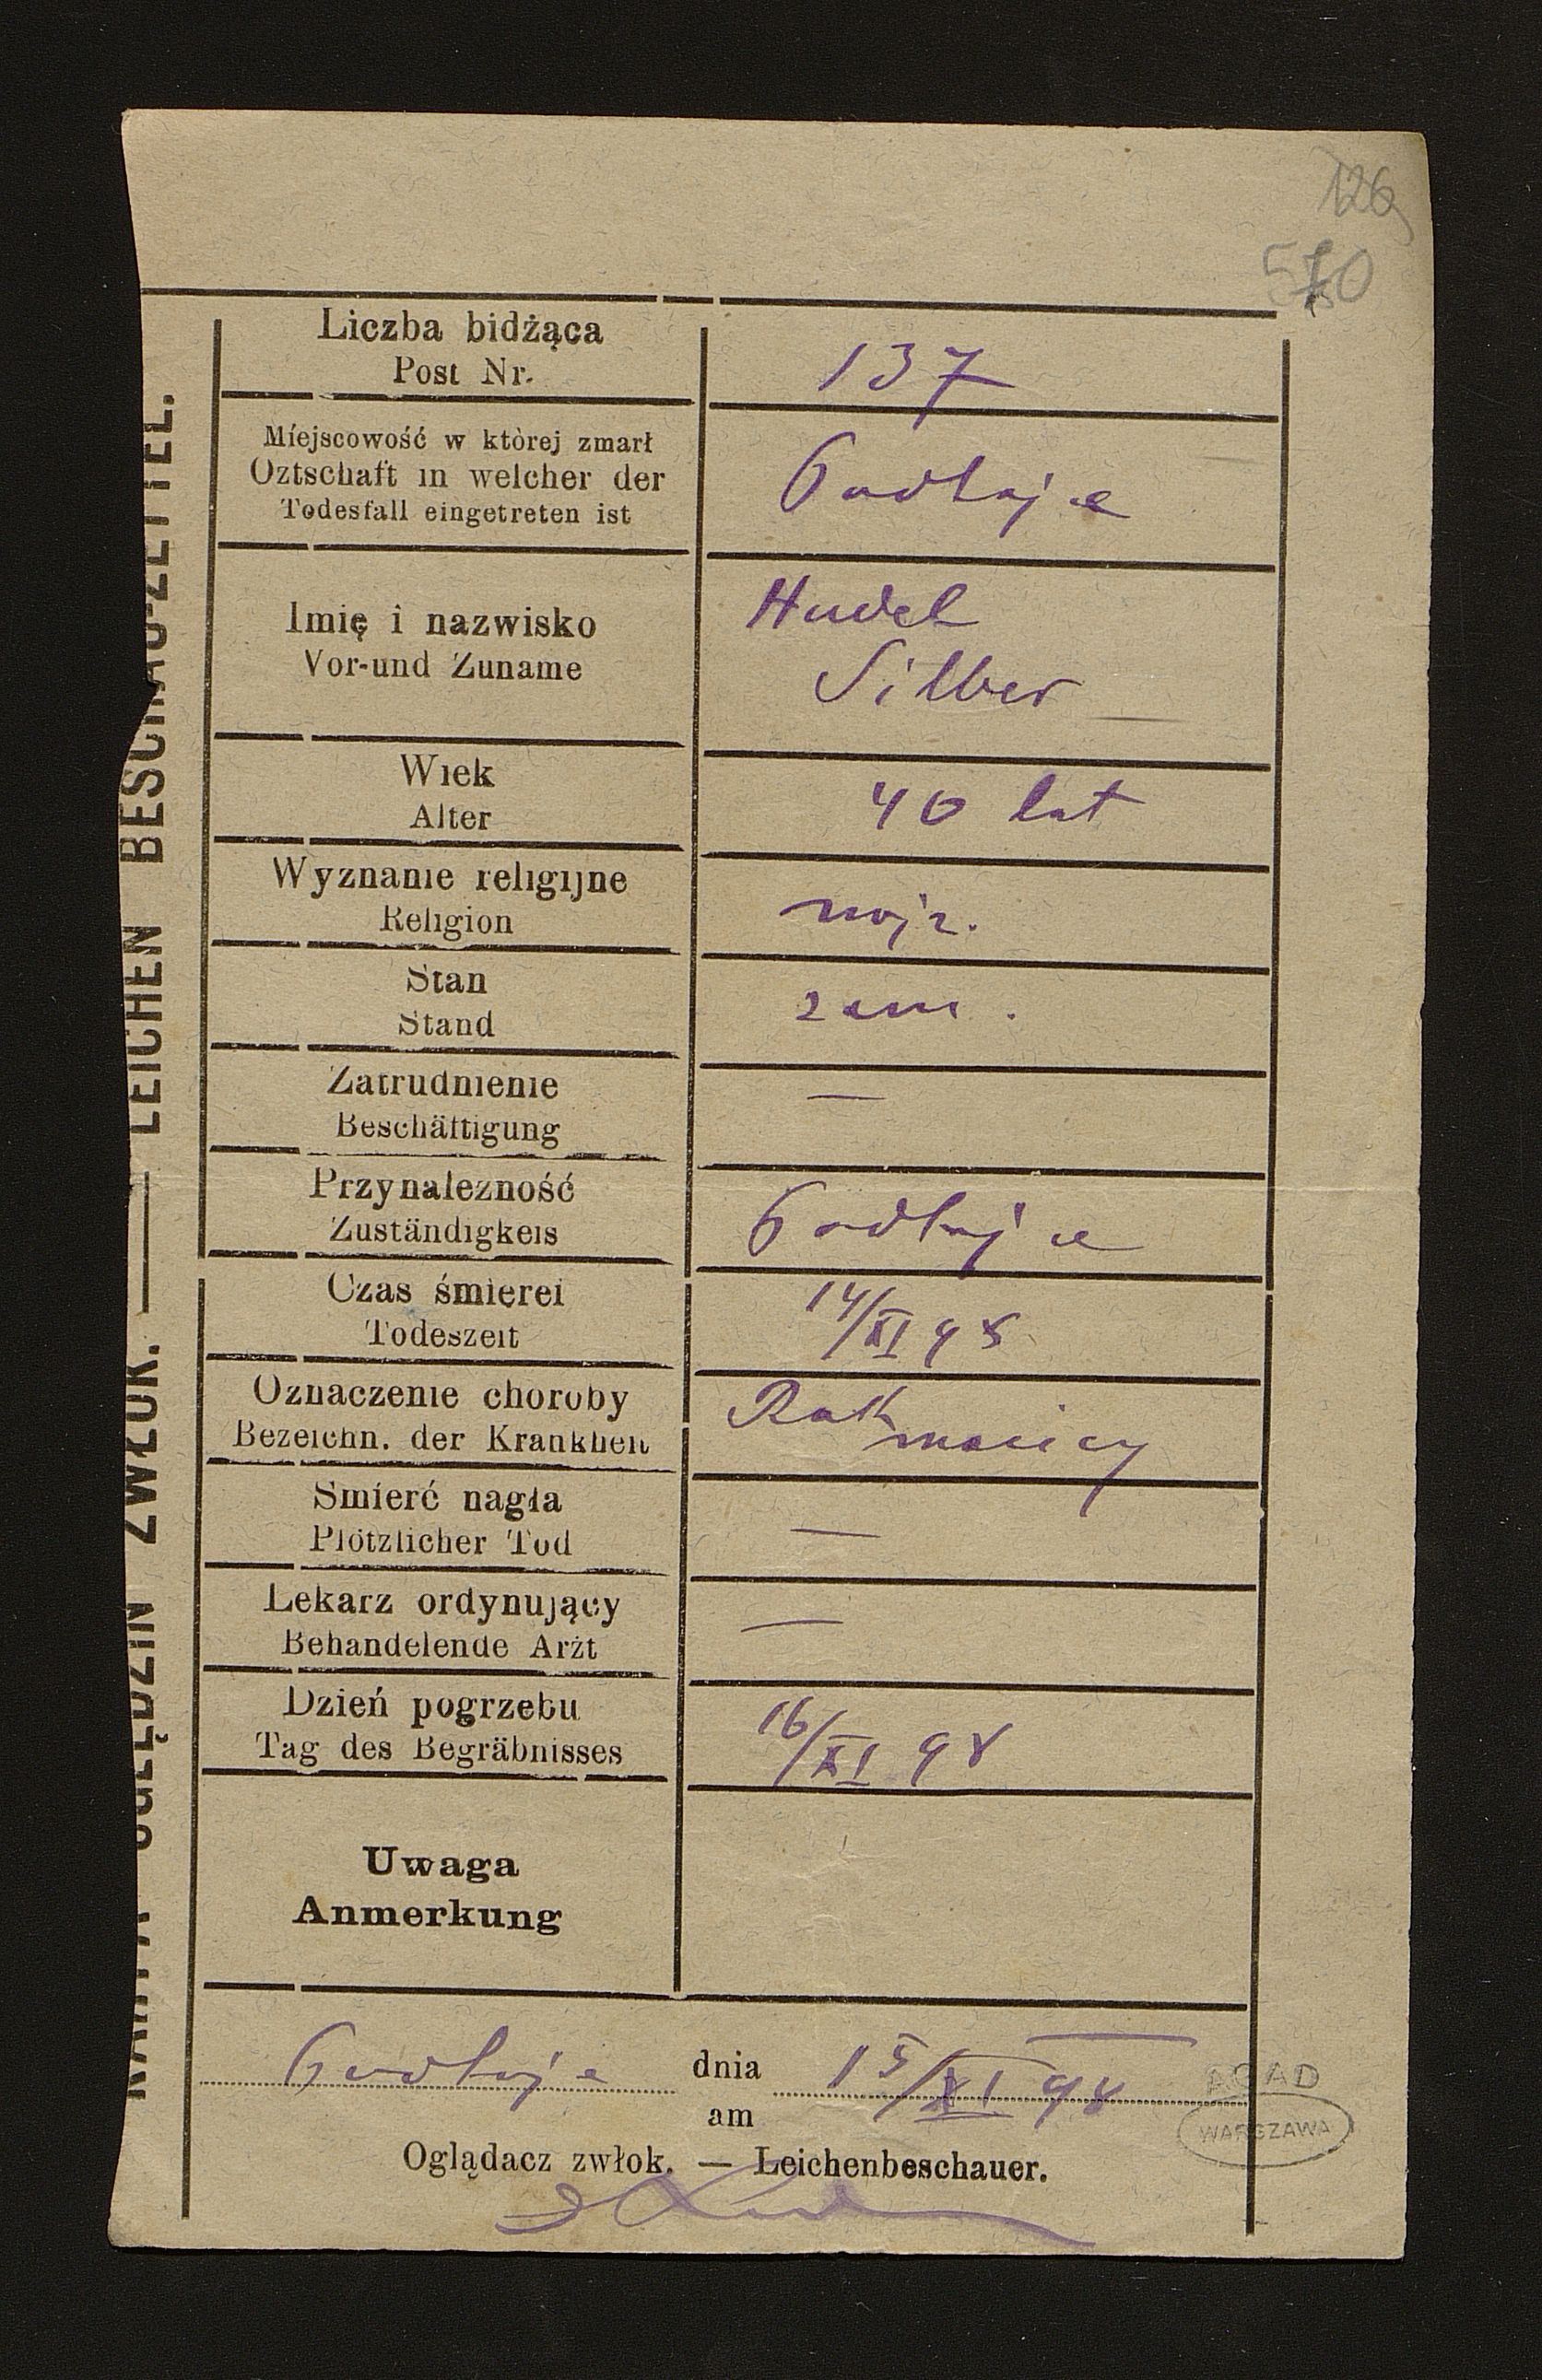 126
570
KARTA OGLĘDZIN ZWŁOK. — LEICHEN BESCHAU-ZETTEL.
Liczba bidżąca
Post Nr.
137
Miejscowość w którèj zmarł
Oztschaft in welcher der
Todesfall eingetreten ist
Imię i nazwisko
Vor-und Zuname
Hudel
Silber
Wiek
Alter
40 lat
Wyznanie religijne
Religion
mojż.
Stan
Stand
zam.
Zatrudnienie
Beschäftigung
—
Przynalezność
Zuständigkeis
Czas śmierei
Todeszeit
14/XI 98
Oznaczenie choroby
Bezeichn. der Krankheit
Rak
macicy
Smierć nagła
Plötzlicher Tod
—
Lekarz ordynujący
Behandelende Arżt
—
Dzień pogrzebu
Tag des Begräbnisses
16/XI 98
Uwaga
Anmerkung
dnia 15/XI 98
am
Oglądacz zwłok. — Leichenbeschauer.
AGAD
WARSZAWA